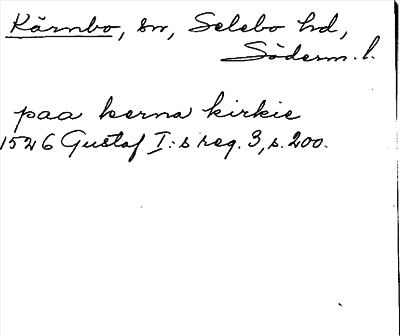 Kärnbo, sn, Selebo hd,
Söderm. l.
paa kerna kirkie
1526 Gustaf I:s reg. 3, s. 200.